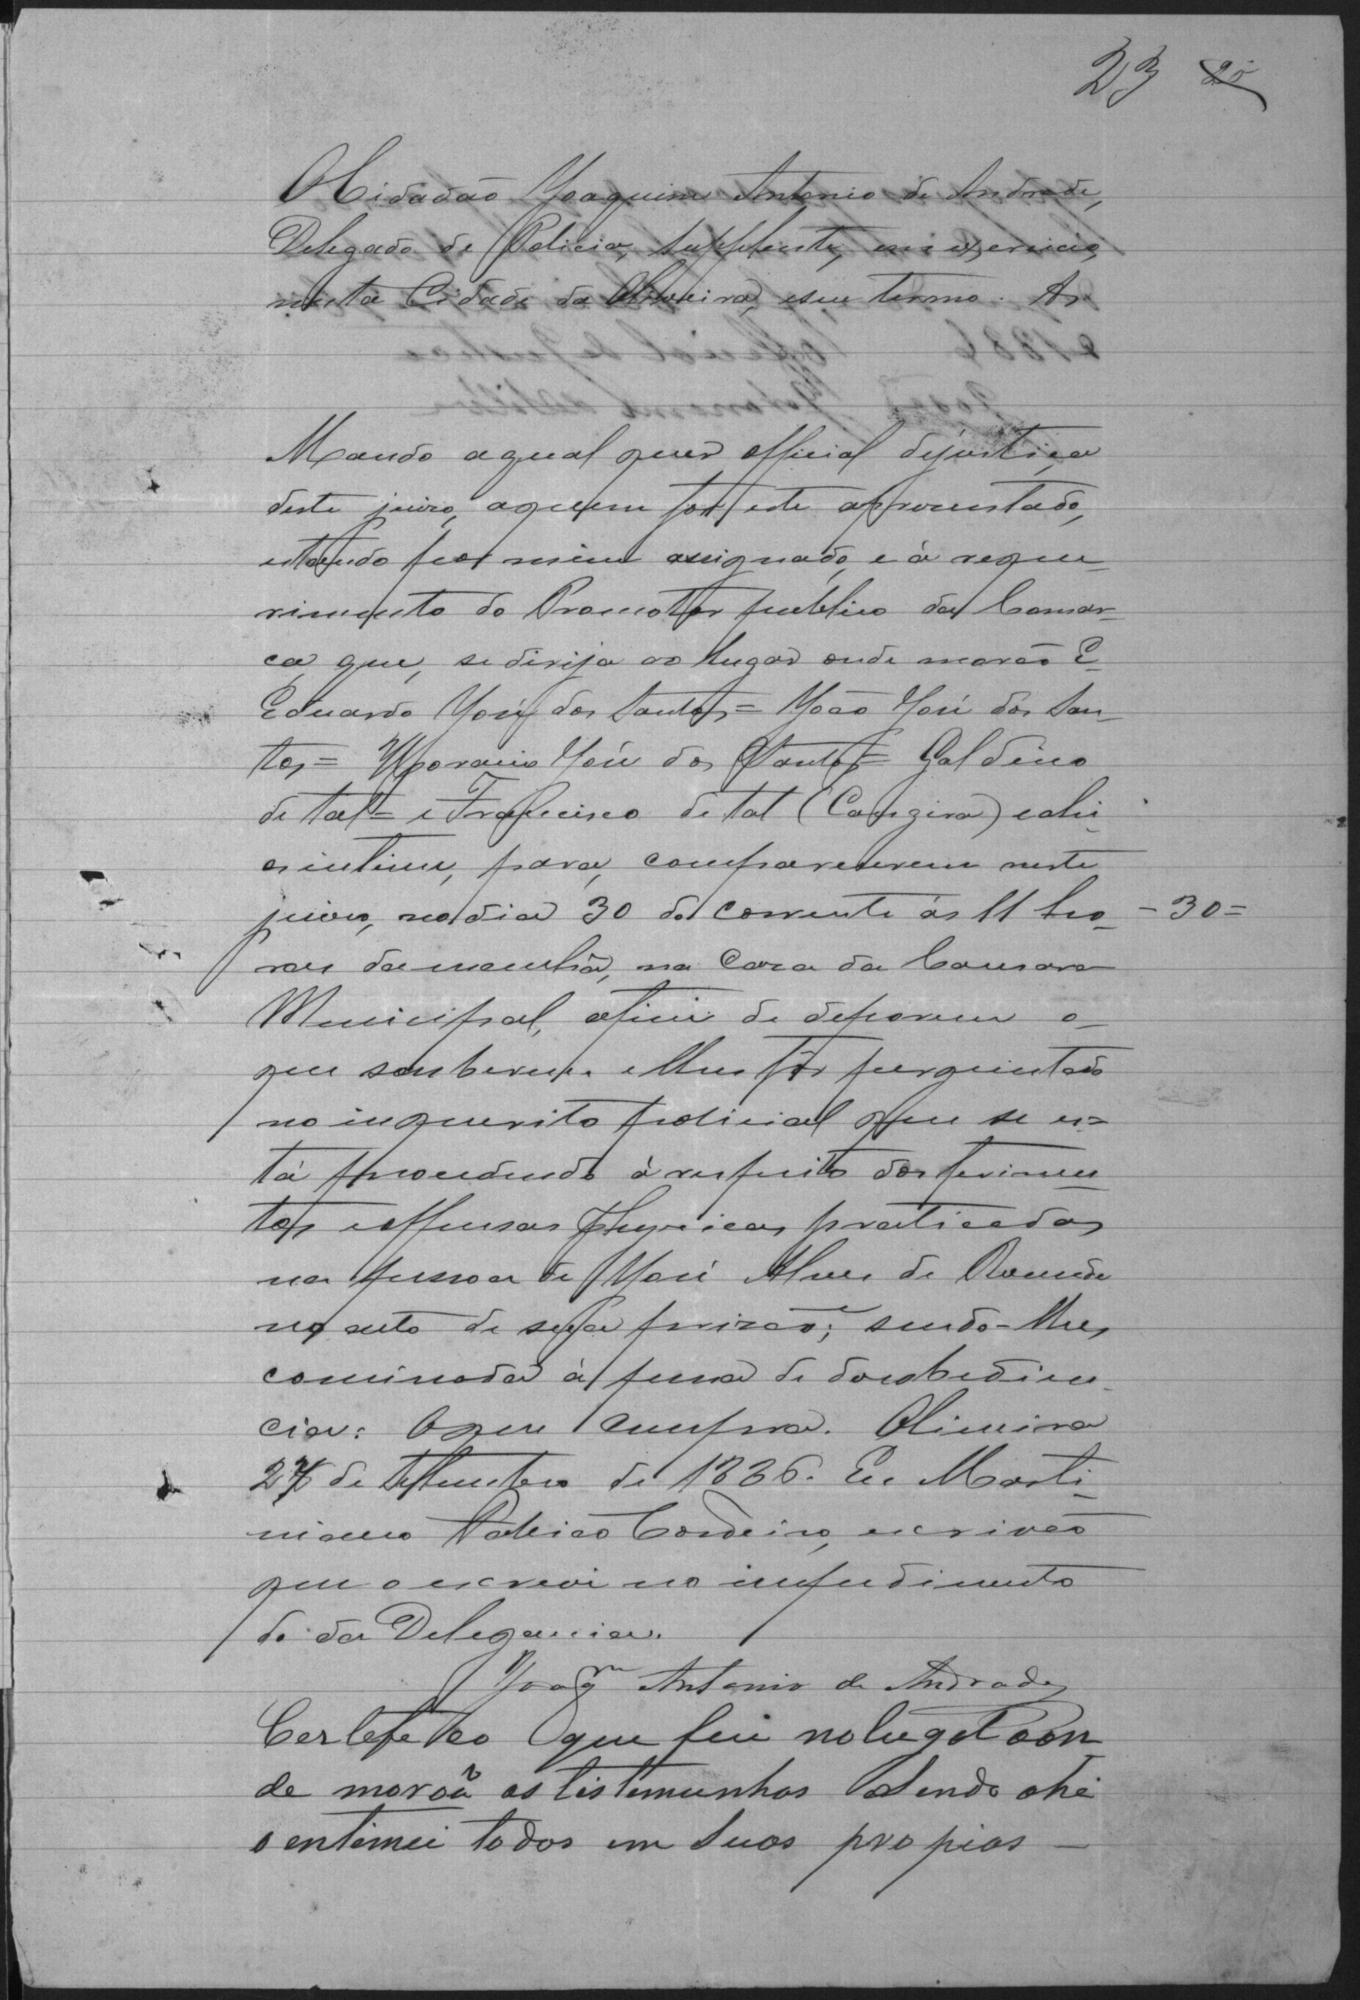 23 20
O Cidadão Joaquim Antonio de Andrade,
Delegado de Policia, supplente, em exercicio,
nesta Cidade da Oliveira, e seu termo. &
Mando aqual quer official dejustiça
deste juizo, aquem for este aprezentado,
estando por mim assignado, e á reque-
rimento do Promotor publico da Comar-
ca, que, se dirija ao lugar onde morão E-
Eduardo José dos Santos = João José dos San-
tos = Honorario José dos Santos = Galdino
de tal = e Francisco de tal (Cangira) e ahi
os intime, para, comparecerem neste
juizo, no dia 30 do corrente ás 11 ho- - 30 =
ras da manhã, na Caza da Camara
Municipal, afim de deporem o-
que souberem. e lhes fôr perguntado
no inquerito policial que se es=
tá procedendo á respeito dos ferimen-
tos e offensas physicas praticadas
na pessoa de José Alves de Rezende
no auto de sua prizão; sendo-lhes
cominada a pena de dezobedien-
cia: O que cumpra. Oliveira
27 de Setembro de 1886. Eu Marti-
niano Cordeiro, escrivão
que o escrevi no impedimento
do da Delegancia.
Joaqm Antonio de Andrade
Certefeco que fui nolugar aon
de morão as testemunhas Sendo ahi
o entimei todos em suas propias —